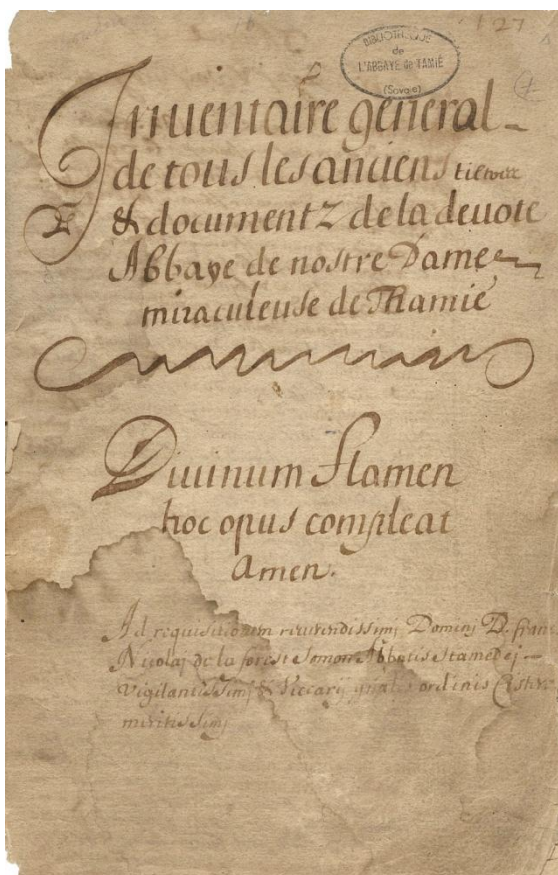 127
BIBLIOTHEQUE
de
L'ABBAYE de TAMIÉ
(Savoie)
Inuentaire general
de tous les anciens tiltres
& documentz de la deuote
Abbaye de nostre Dame
miraculeuse de Thamié
Diuinum flamen
hoc opus compleat
Amen.
Ad requisitionem reuerendissimj Dominj D. fran
Nicolaj de la forest Somon Abbatis Stamedej
Vigilantissimj & Viccarij gñalis ordinis Cister
meritissimj